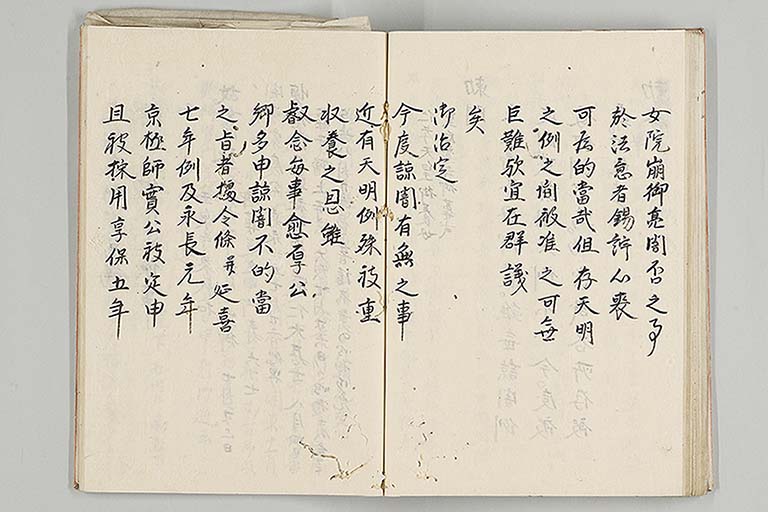 女院崩御亮闇否之事
於法意者錫紵心喪
可為的當哉但存天明
之例之間被准之可無
巨難歟宜在群議
矣
御治定
今度諒闇有無之事
近有天明例殊被重
收養之恩雖
叡念每事愈厚公
卿多申諒闇不的當
之旨者據令條并延喜
七年例及永長元年
京極師實公被定申
且被採用享保五年